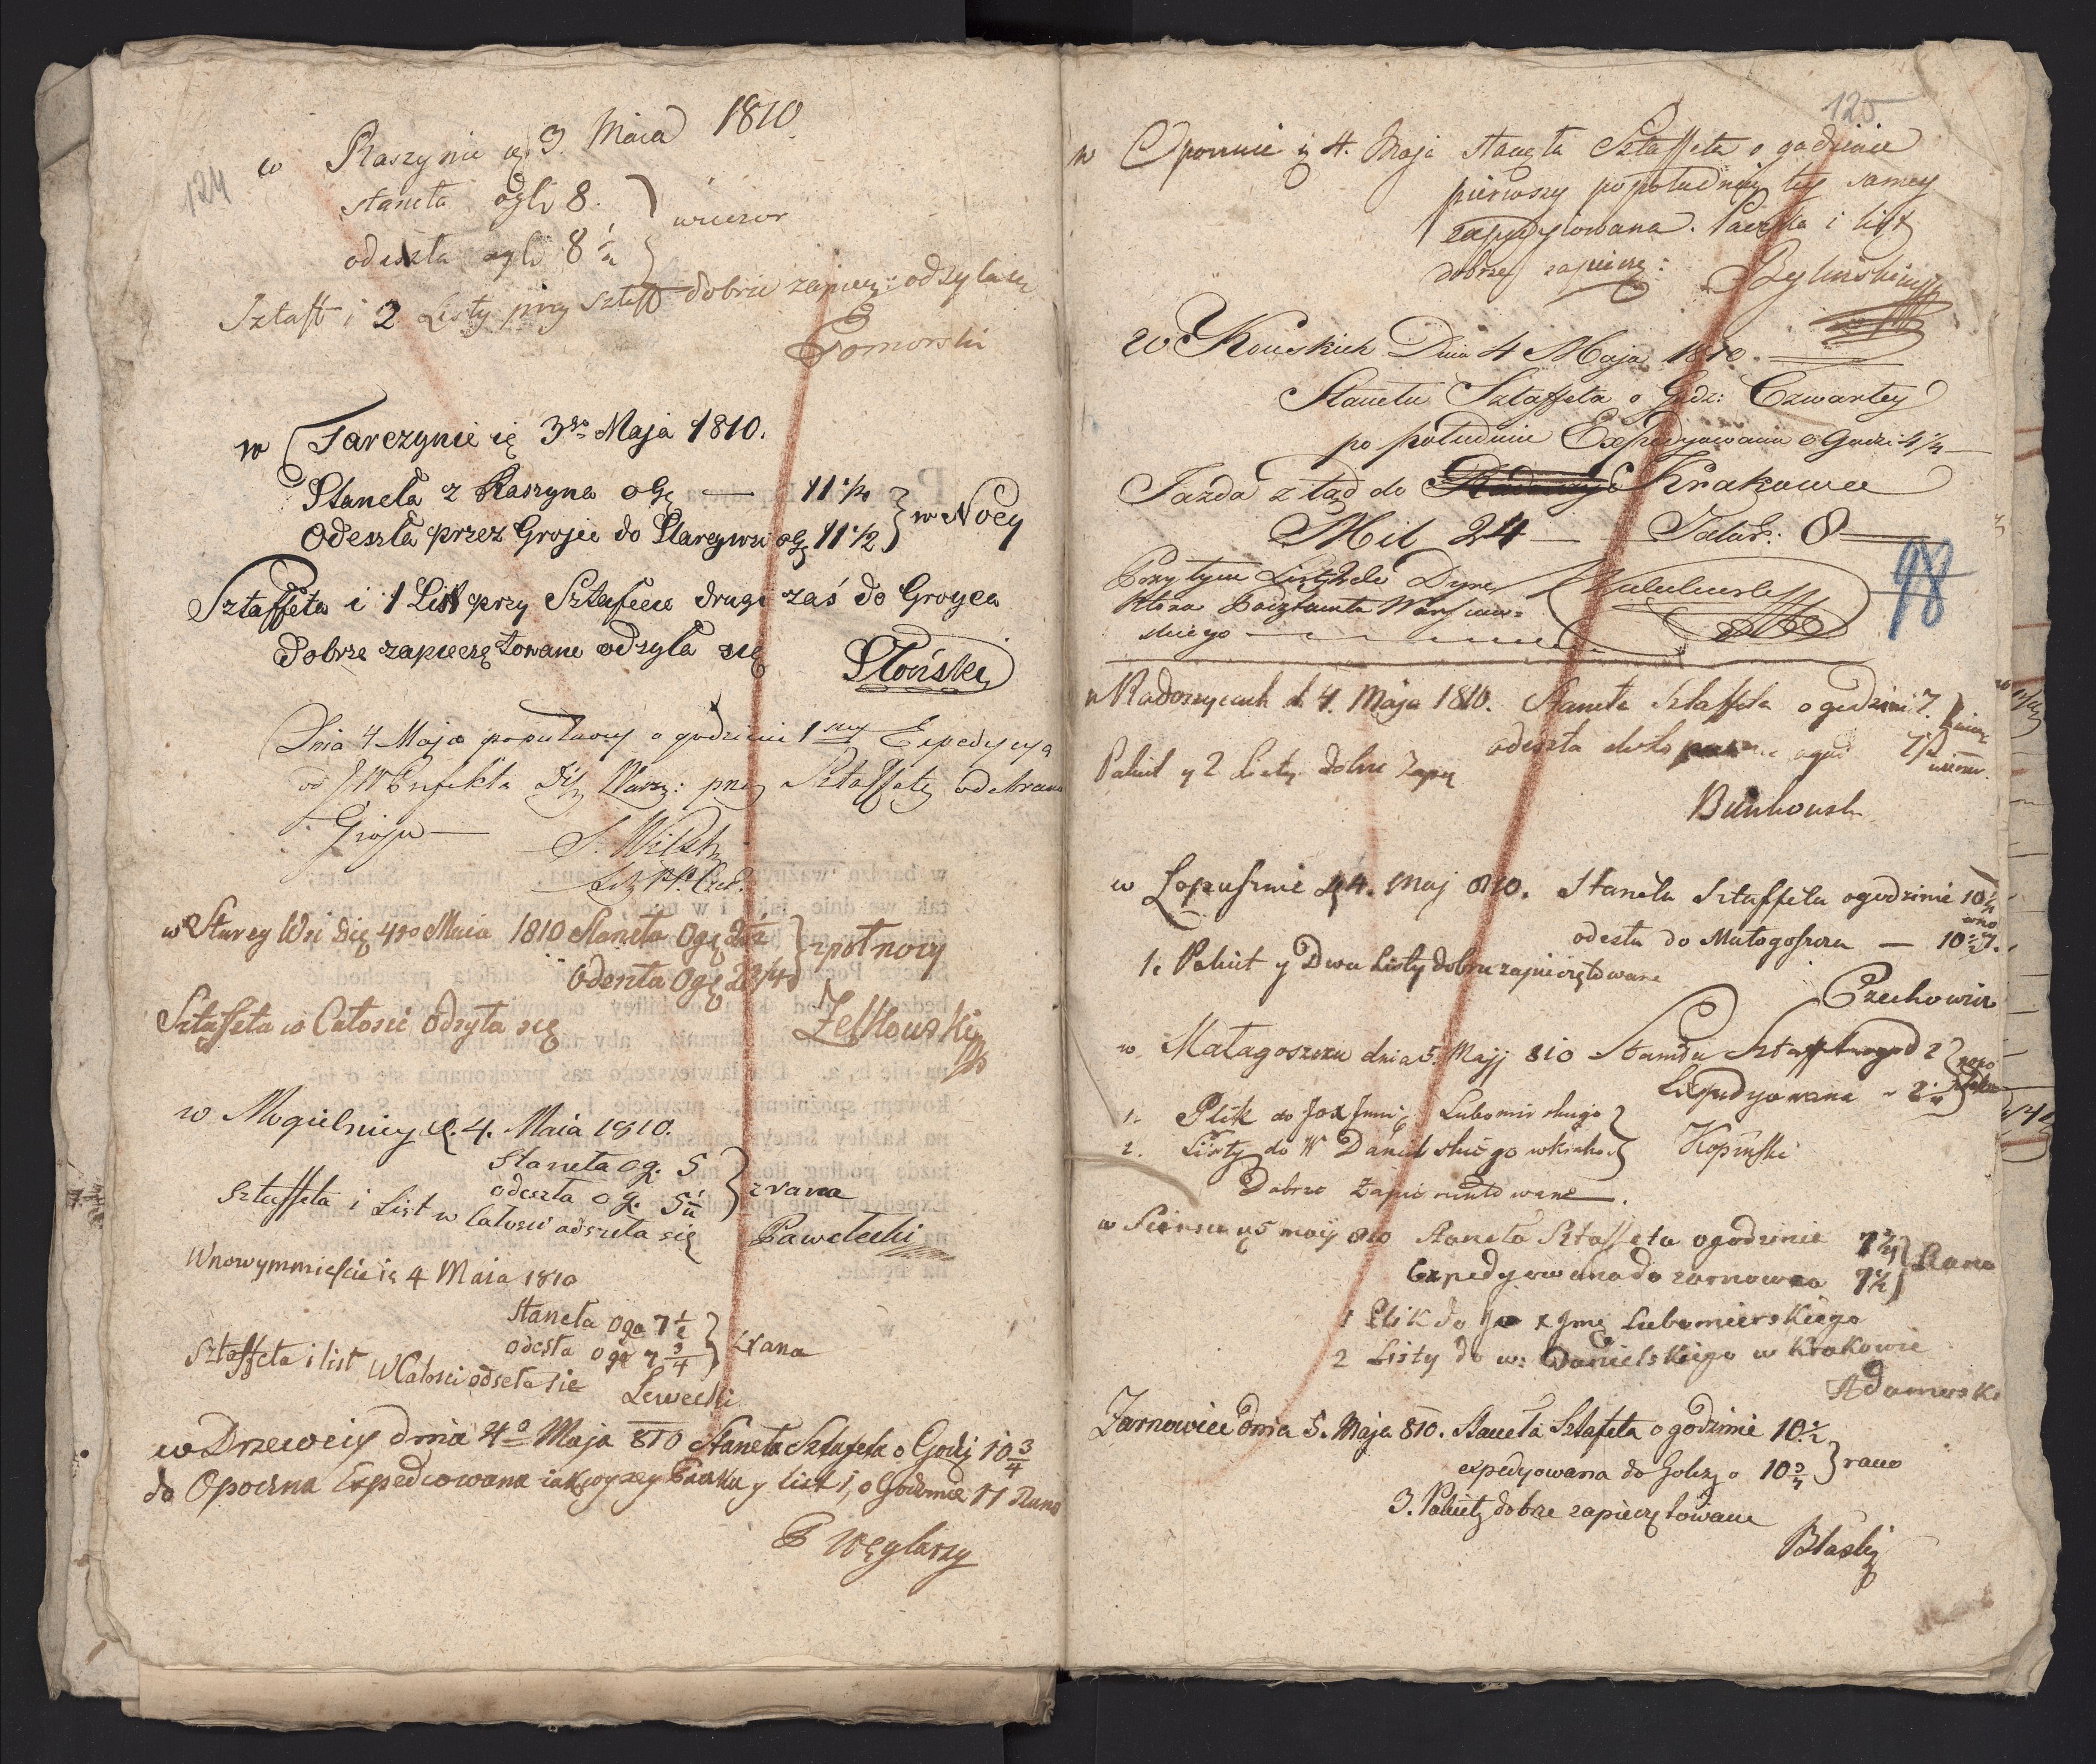 124
w Raszynie d. 3. Maia 1810
staneła ogh 8.
wieczor
odeszła ogh 8 1/2
Sztaff i 2 Listy przy Sztaff dobrze zapiecz: odsyła się
Pomorski
w Tarczynie ię 3go Maja 1810.
Staneła z Raszyna o Gę — 11 1/4
w Nocy
Odeszła przez Groiec do Stareywsi o Gę 11 1/2
Sztaffeta i 1 List przy Sztafecie drugi zaś do Groyca
dobrze zapieczętowane odsyła się
Słoński
Dnia 4 Maja popułnocy o godzinie 1szey Expedycya
od JW Prefekta Warsz: przy Sztaffetę odebrana
Groiec —
w Starey Wsi Dię 4go Maia 1810 Staneła Ogę
zpołnocy
Odeszła Ogę 2 3/4
Sztaffeta w Całosci odsyła się
Zelkowski
w Mogielnicy d. 4. Maia 1810.
Staneła og. 5
z rana
odeszła o g. 5 1/2
Sztaffeta i List w Całosci odszeła się
Pawełecki
Wnowymmieście ię 4 Maia 1810
staneła Oga 7 1/2
zrana
odesła o ga 7 3/4
Sztaffeta i list W Całosci odseła sie
Lewecki
w Drzewicy dnia 4o Maja 810 Staneła Sztafeta o Godz 10 3/4
do Opoczna Expediowana iakwyzey Paczka y list 1, o Godzinie 11 Rano
Węglarzy
125
w Opocznie d 4. Maja staneła Sztaffeta o godzinie
pierwszy popołudniu tey samey
expedyiowana. Paczka i list
dobrze zapiecz:
Bylinski
W Konskich Dnia 4 Maja 1810.
Staneła Sztaffeta o Godz: Czwartey
po południu Expedyowana o Godzi: 4 1/4
Jazda z tąd do Krakowa
Mil 24 — Talar: 8
Przytym Listy 2 do Dyre
ktora Pocztamtu Warszaw=
skiego
98
w Radoszycach d. 4. Maja 1810. Staneła Sztaffeta o godzinie 7.
odeszła do Łopuszna o god 7 1/2
wieczor.
Pakiet y 2 Listy dobrze zapię
Bunkowski
w Łopusznie d 4. Maj 810. Staneła Sztaffeta ogodzinie 10 1/4
odesła do Małogoszcza — 10 1/2
1. Pakiet y Dwa Listy dobrze zapieczętowane
Czechowicz
w Małagoszczu dnia 5 Maj 810 Staneła Sztaffeta ogod 2
Expedyowana - 2 1/4
1. Plik do Jox Jmci Lubomirskiego
2. Listy do W Danielskiego wkrakow
Kopinski
Dobrze Zapieczentowane.
w Sieńsku d 5 maij 810 Staneła Sztaffeta ogodzinie 7 1/4
Rano
Expedyowana do zarnowca 7 1/2
1 Plik do Jo x Jmę Lubomierskiego
2 Listy do w: Danielskiego w Krakowie
Adamski
Zarnowiec dnia 5. Maja 810. Staneła Sztafeta o godzinie 10 1/2
rano
expedyowana do Golczo 10 3/4
3. Pakiety dobrze zapieczętowane